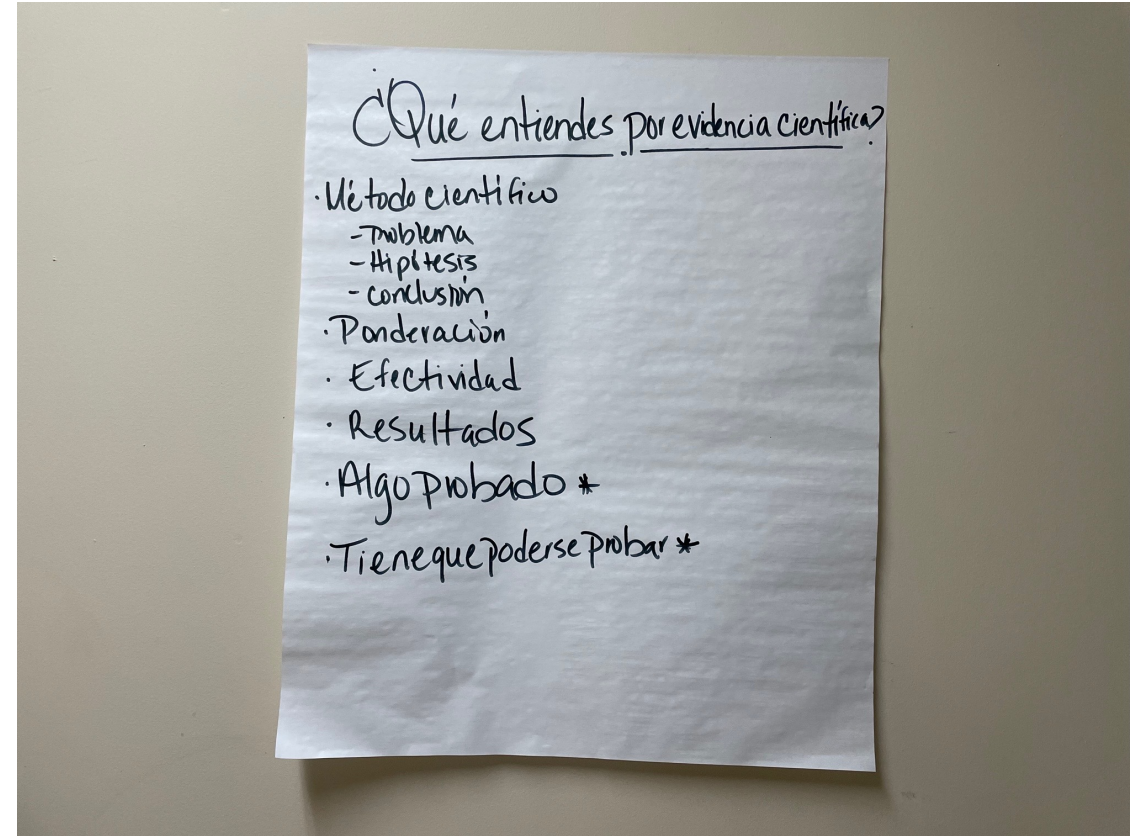 ¿Qué entiendes por evidencia científica?
· Método científico
- Problema
- Hipótesis
- Conclusión
· Ponderación
· Efectividad
· Resultados
· Algo probado *
· Tiene que poderse probar *